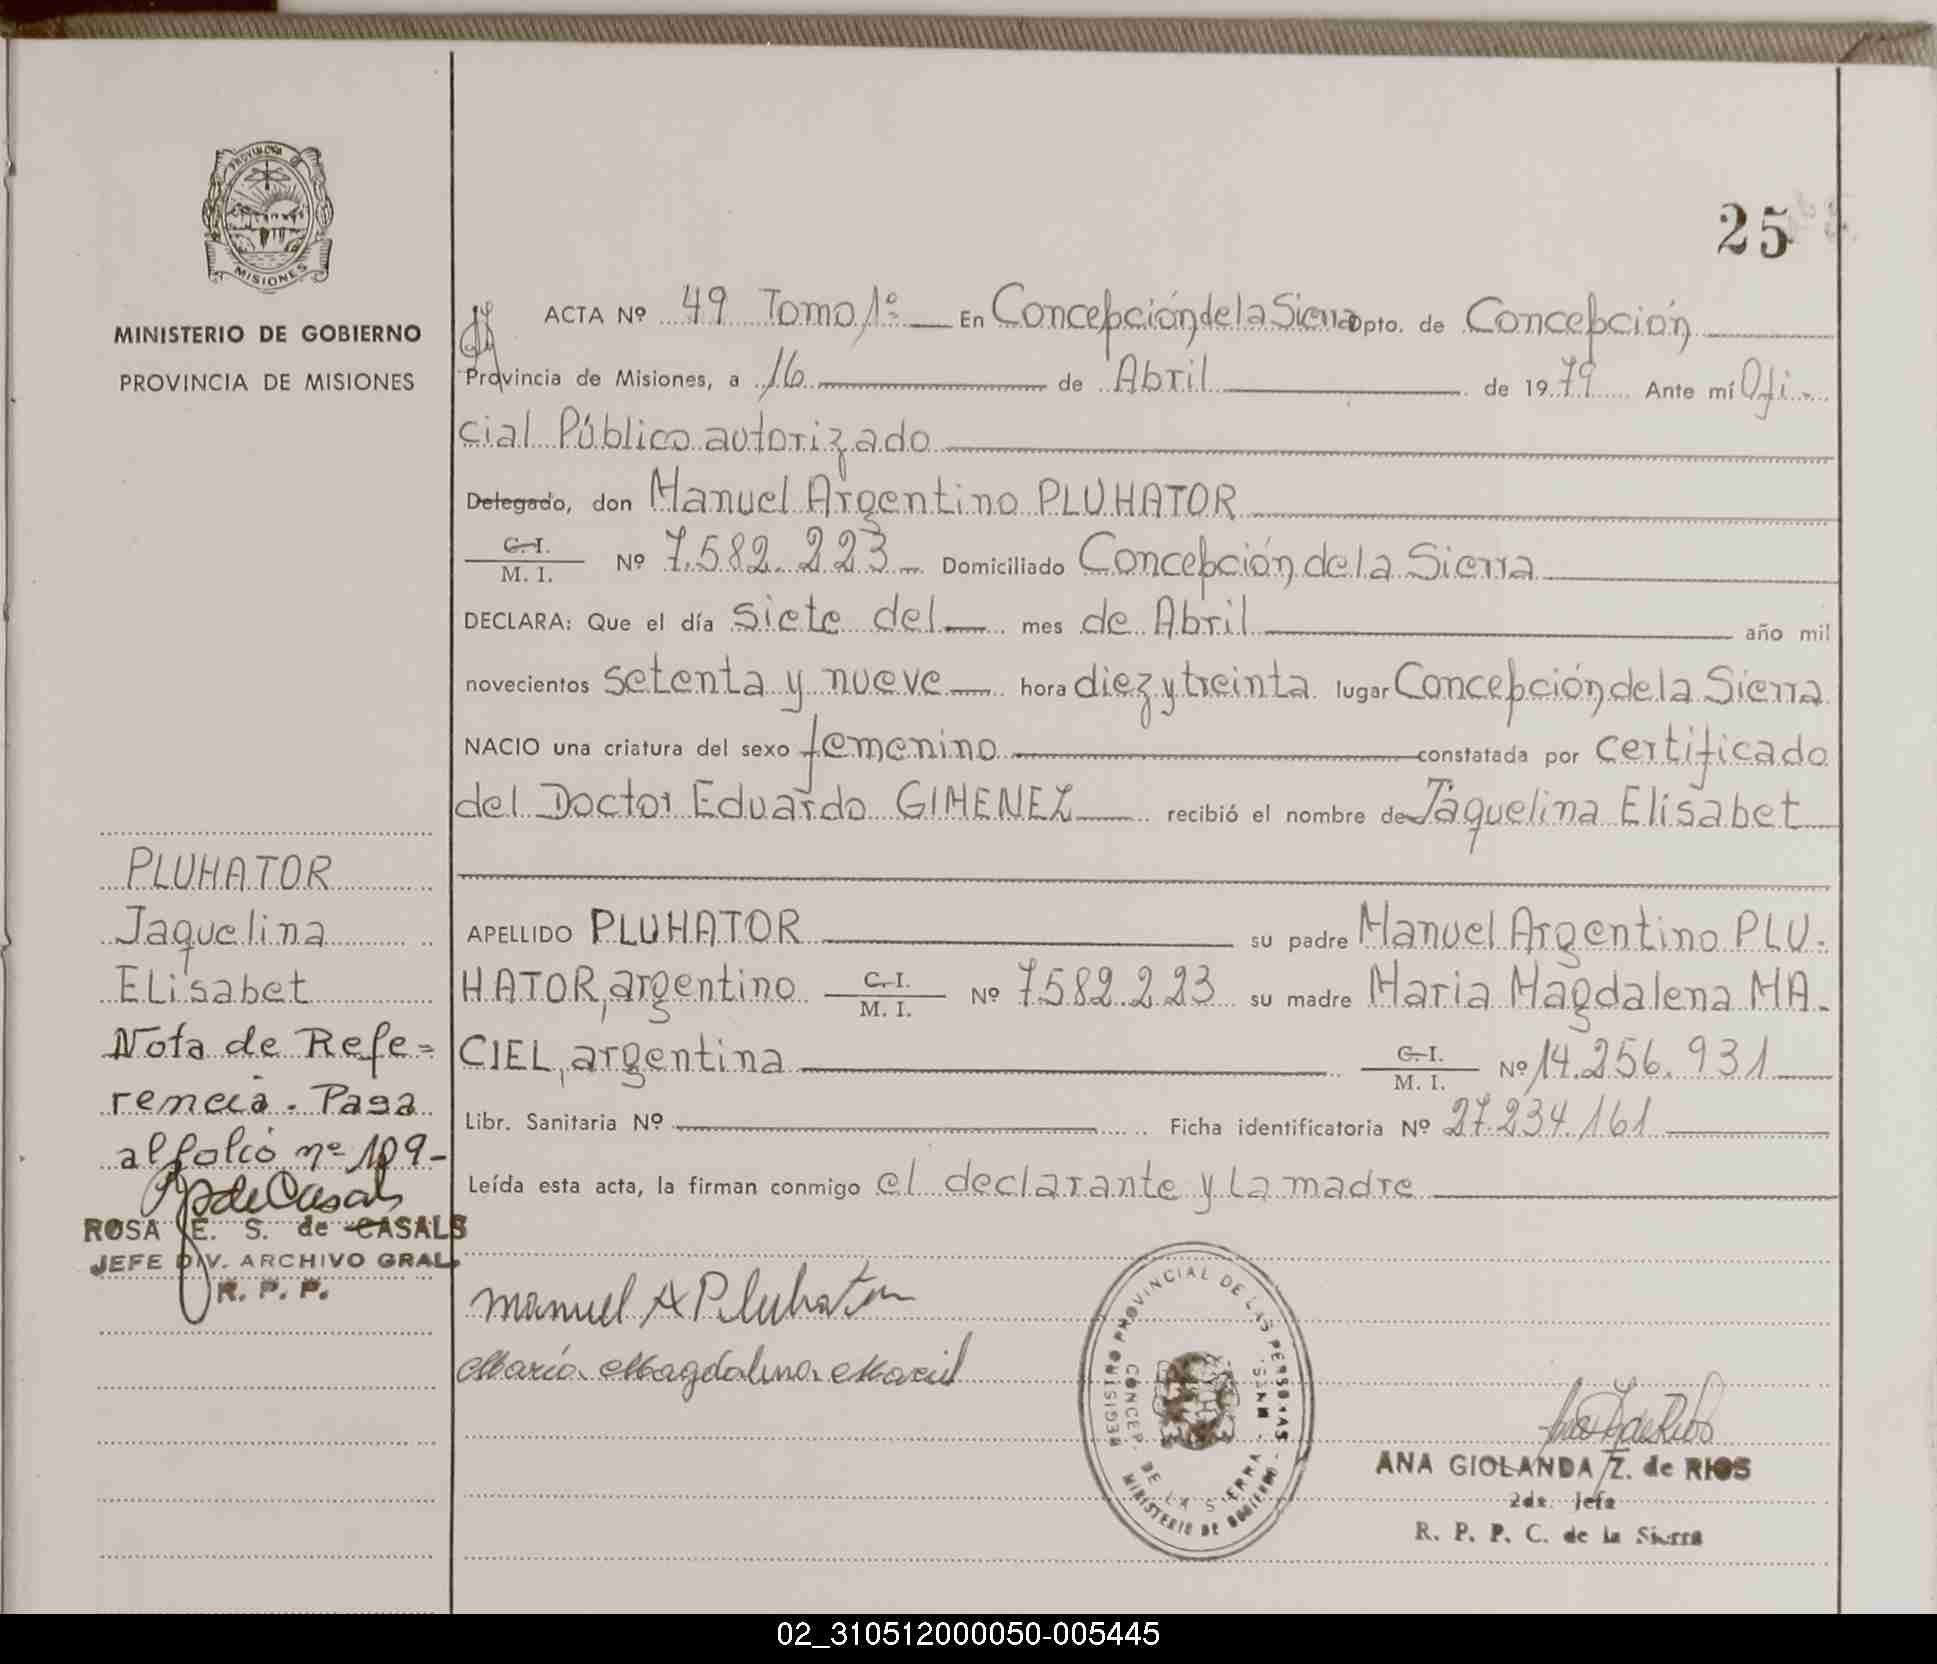 PROVINCIA DE
MISIONES
MINISTERIO DE GOBIERNO
PROVINCIA DE MISIONES
25
ACTA Nº 49 Tomo 1º En Concepción de la Sierra Dpto. de Concepción
Provincia de Misiones, a 16 de Abril de 1979 Ante mí Ofi-
cial Público autorizado
Delegado, don Manuel Argentino PLUHATOR
C. I.
M. I. Nº 7.582.223 Domiciliado Concepción de la Sierra
DECLARA: Que el día siete del mes de Abril año mil
novecientos setenta y nueve hora diez y treinta lugar Concepción de la Sierra
NACIO una criatura del sexo femenino constatada por certificado
del Doctor Eduardo GIMENEZ recibió el nombre de Jaquelina Elisabet
APELLIDO PLUHATOR su padre Manuel Argentino PLU-
HATOR, argentino C. I. M. I. Nº 7.582.223 su madre Maria Magdalena MA-
CIEL, argentina C. I. M. I. Nº 14.256.931
Libr. Sanitaria Nº Ficha identificatoria Nº 27.234.161
Leída esta acta, la firman conmigo el declarante y la madre
PLUHATOR
Jaquelina
ELisabet
Nota de Refe=
rencia. Pasa
al folio nº 109-
RpdeCasals
ROSA E. S. de CASALS
JEFE DIV. ARCHIVO GRAL.
R. P. P.
Manuel A Pluhator
María Magdalena Maciel
REGISTRO PROVINCIAL DE LAS PERSONAS
CONCEP. DE LA SIERRA - MNES.
MINISTERIO DE GOBIERNO
ANA GIOLANDA Z. de RIOS
2da. Jefa
R. P. P. C. de la Sierra
02_310512000050-005445